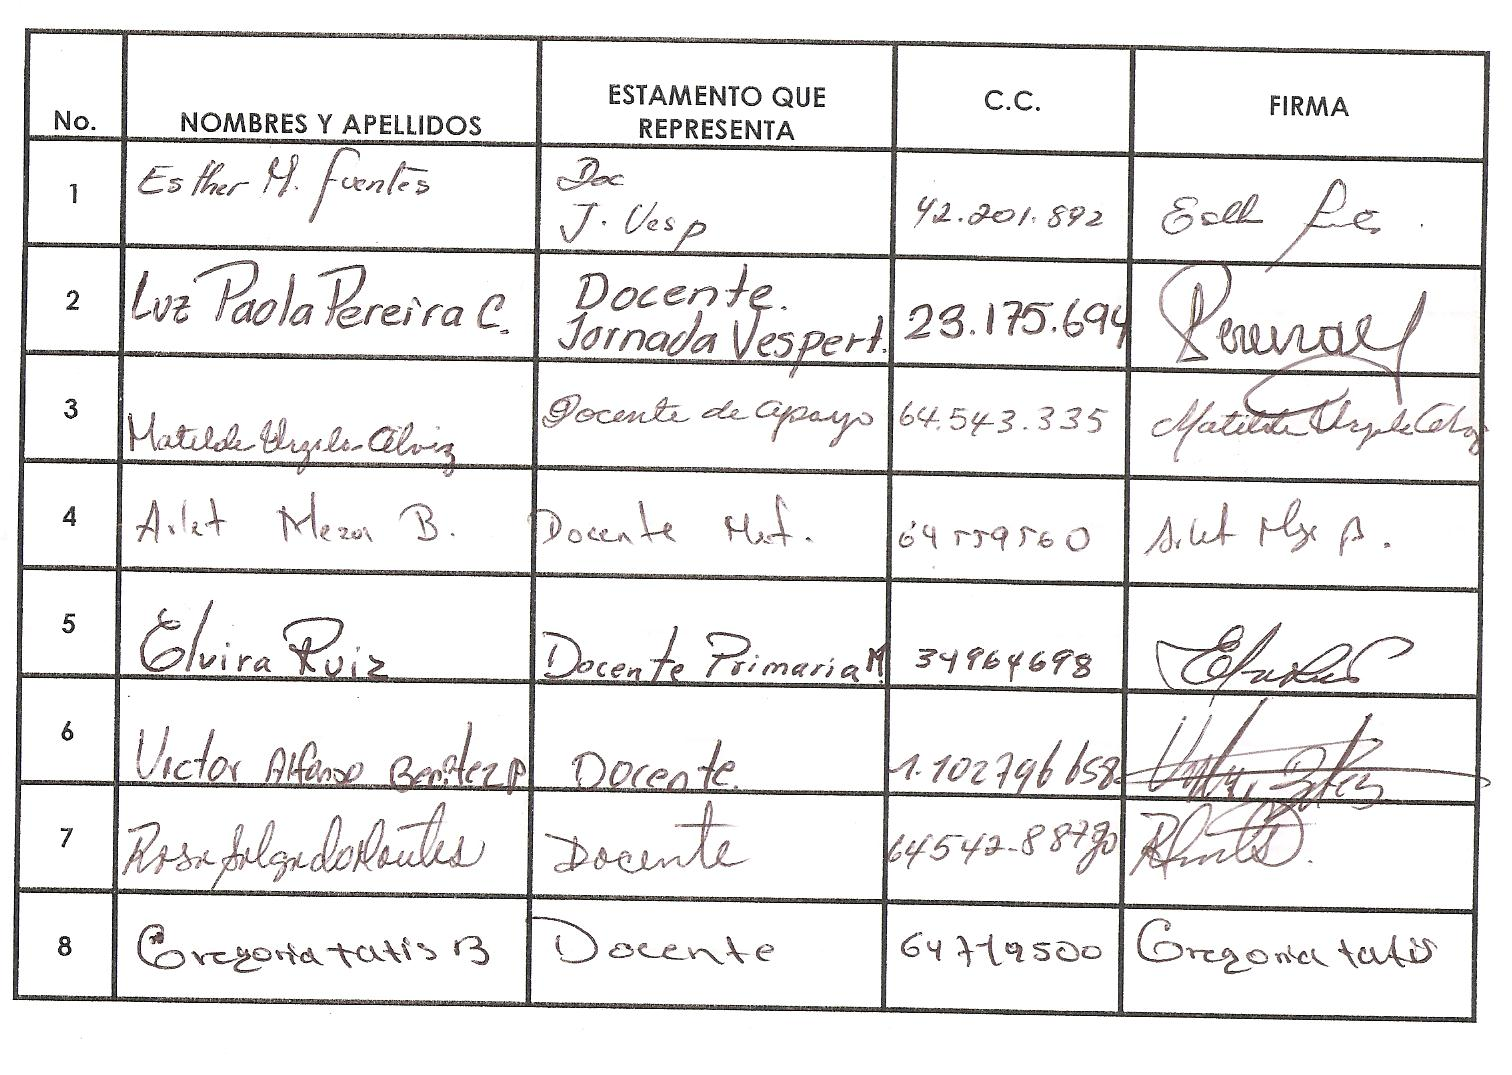 No. NOMBRES Y APELLIDOS ESTAMENTO QUE REPRESENTA C.C. FIRMA
1 Esther M. fuentes Doc J. Vesp 42.201.892 Esth
2 Luz Paola Pereira C. Docente. Jornada Vespert. 23.175.694
3 Matilde Urzola Alviz Docente de apoyo 64.543.335 Matilde Urzola
4 Arlet Meza B. Docente Mat. 64559560 Arlet B.
5 Elvira Ruiz Docente Primaria M. 34964698
6 Victor Alfonso Benítez P Docente. 1.102796658
7 Rosa Salgado Montes Docente
8 Gregoria tatis B Docente 64719500 Gregoria tatis